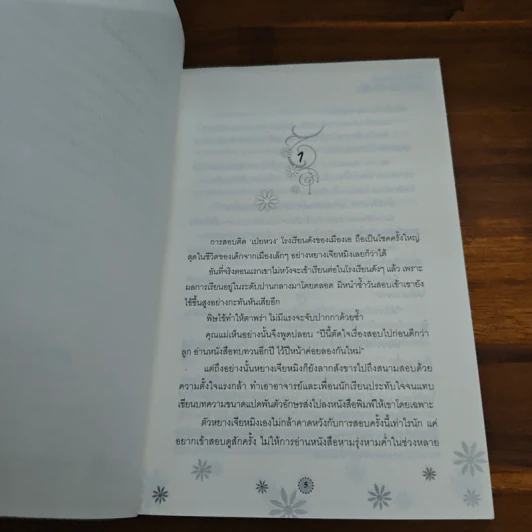 1
การสอบติด 'เปยหวง' โรงเรียนดังของเมืองเอ ถือเป็นโชคครั้งใหญ่
สุดในชีวิตของเด็กจากเมืองเล็กๆ อย่างหยางเจียหมิงเลยก็ว่าได้
อันที่จริงตอนแรกเขาไม่หวังจะเข้าเรียนต่อในโรงเรียนดังๆ แล้ว เพราะ
ผลการเรียนอยู่ในระดับปานกลางมาโดยตลอด มิหนำซ้ำวันสอบเข้าเขายัง
ไข้ขึ้นสูงอย่างกะทันหันเสียอีก
พิษไข้ทำให้ตาพร่า ไม่มีแรงจะจับปากกาด้วยซ้ำ
คุณแม่เห็นอย่างนั้นจึงพูดปลอบ "ปีนี้ตัดใจเรื่องสอบไปก่อนดีกว่า
ลูก อ่านหนังสือทบทวนอีกปี ไว้ปีหน้าค่อยลองกันใหม่"
แต่ถึงอย่างนั้นหยางเจียหมิงก็ยังลากสังขารไปถึงสนามสอบด้วย
ความตั้งใจแรงกล้า ทำเอาอาจารย์และเพื่อนนักเรียนประทับใจจนแทบ
เขียนบทความขนาดแปดพันตัวอักษรส่งไปลงหนังสือพิมพ์ให้เขาโดยเฉพาะ
ตัวหยางเจียหมิงเองไม่กล้าคาดหวังกับการสอบครั้งนี้เท่าไรนัก แค่
อยากเข้าสอบดูสักครั้ง ไม่ให้การอ่านหนังสือหามรุ่งหามค่ำในช่วงหลาย
5